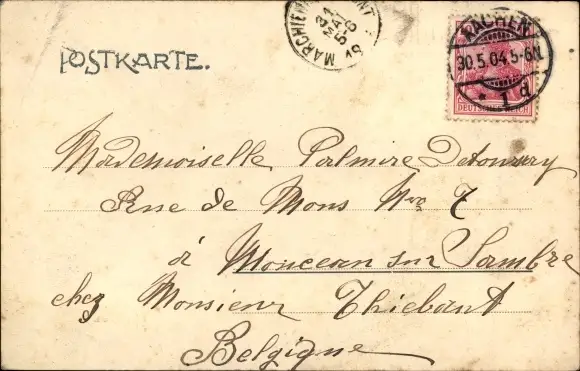 POSTKARTE.
31
MAI
5-6
19
AACHEN
30.5.04.5-6N.
* 1 d
DEUTSCHES REICH
Mademoiselle Palmire
Rue de Mons Nro 7
à Monceau sur Sambre
chez Monsieur Thiebaut
Belgique